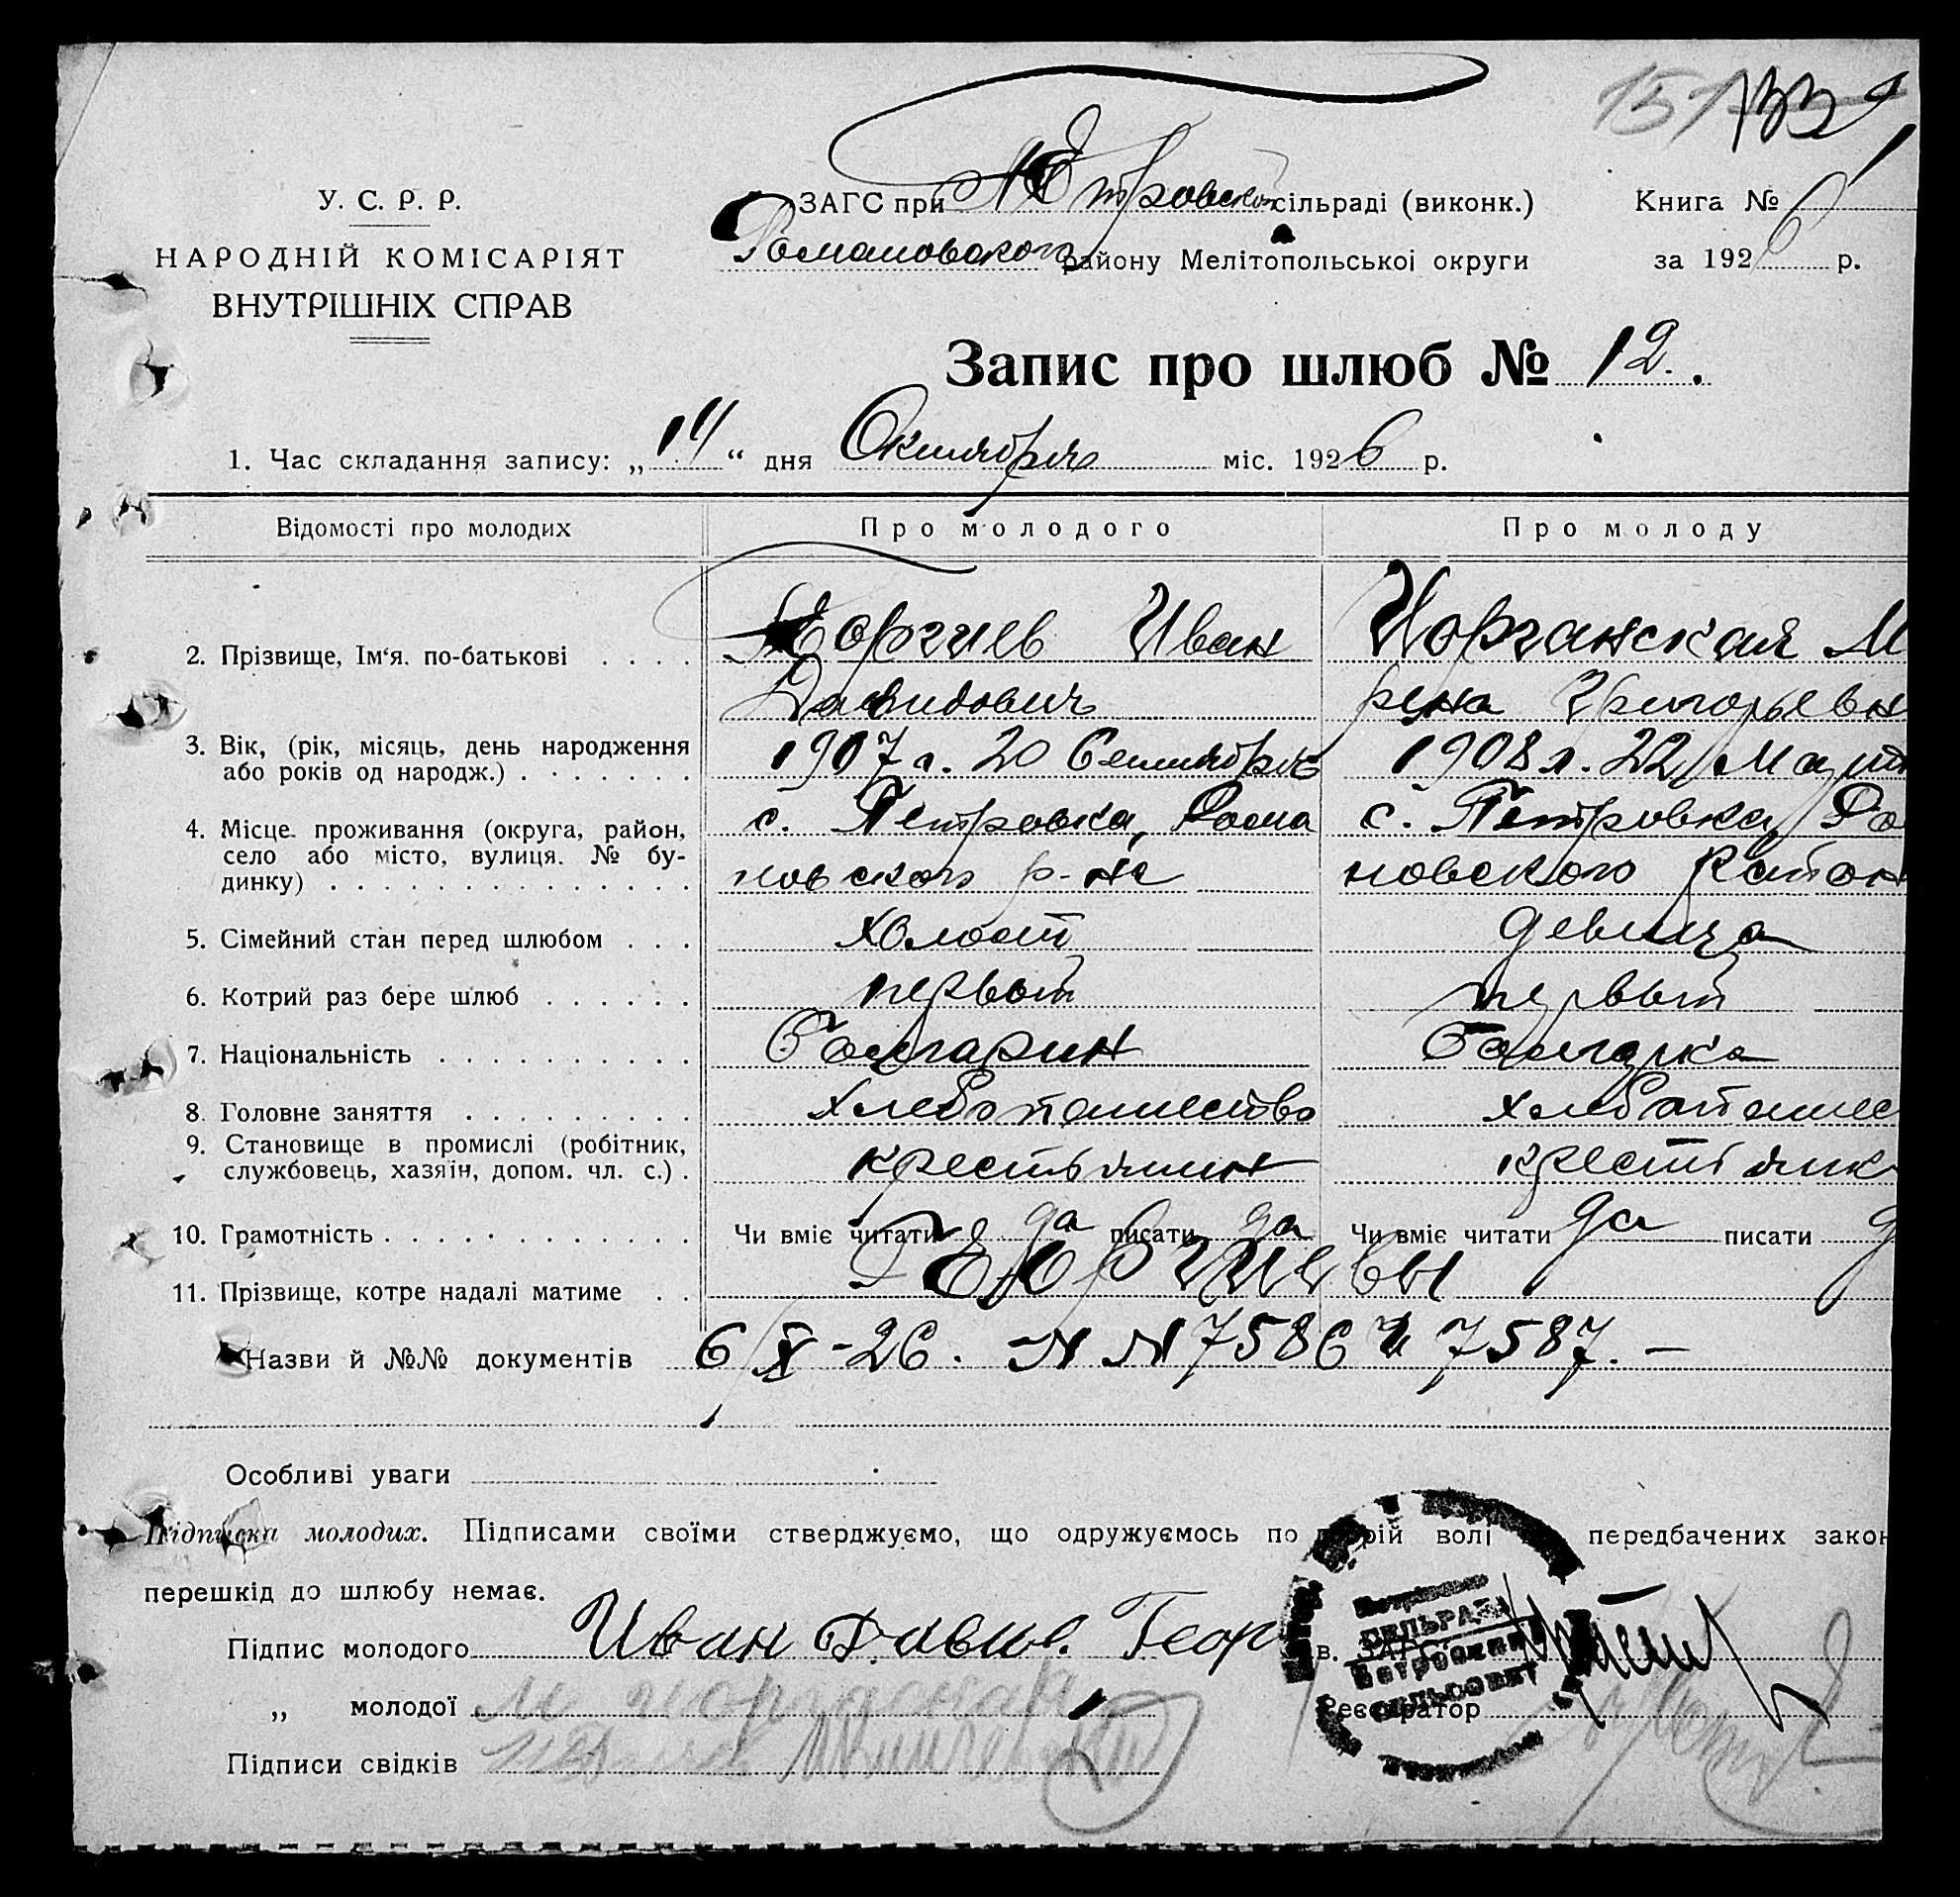 151 1339
У. С. Р. Р.
НАРОДНІЙ КОМІСАРІЯТ
ВНУТРІШНІХ СПРАВ
ЗАГС при Петровской сільраді (виконк.)
Романовского району Мелітопольської округи
Книга №
за 1926 р.
Запис про шлюб № 12.
1. Час складання запису: „14“ дня Октября міс. 1926 р.
Відомості про молодих Про молодого Про молоду
2. Прізвище, Ім‘я, по-батькові . . . . Георгиев Иван Йорганская М
Давидович рена Григорьевн
3. Вік, (рік, місяць, день народження 1907 г. 20 Сентября 1908 г. 22 Март
або років од народж.) . . . . . . .
4. Місце проживання (округа, район, с. Петровка, Рома с. Петровка, Ро
село або місто, вулиця. № бу-
динку) . . . . . . . . . . . . . новского р-на новского Район
5. Сімейний стан перед шлюбом . . . холост девица
6. Котрий раз бере шлюб . . . . . . первый первый
7. Національність . . . . . . . . . . Болгарин Болгарка
8. Головне заняття . . . . . . . . . хлебопашество хлебопашес
9. Становище в промислі (робітник,
службовець, хазяїн, допом. чл. с.) . крестьянин крестьянк
10. Грамотність . . . . . . . . . . . . Чи вміє читати да писати да Чи вміє читати да писати д
11. Прізвище, котре надалі матиме . . Георгиевы
Назви й №№ документів 6/X-26. N N 7586 и 7587. —
Особливі уваги
Підписка молодих. Підписами своїми стверджуємо, що одружуємось по добрій волі передбачених закон
перешкід до шлюбу немає.
Підпис молодого Иван Давид. Геор в. ЗАГС
„ молодої М Йорганская Реєстратор
Підписи свідків
СІЛЬРАДА
Петровский
СЕЛЬСОВЕТ